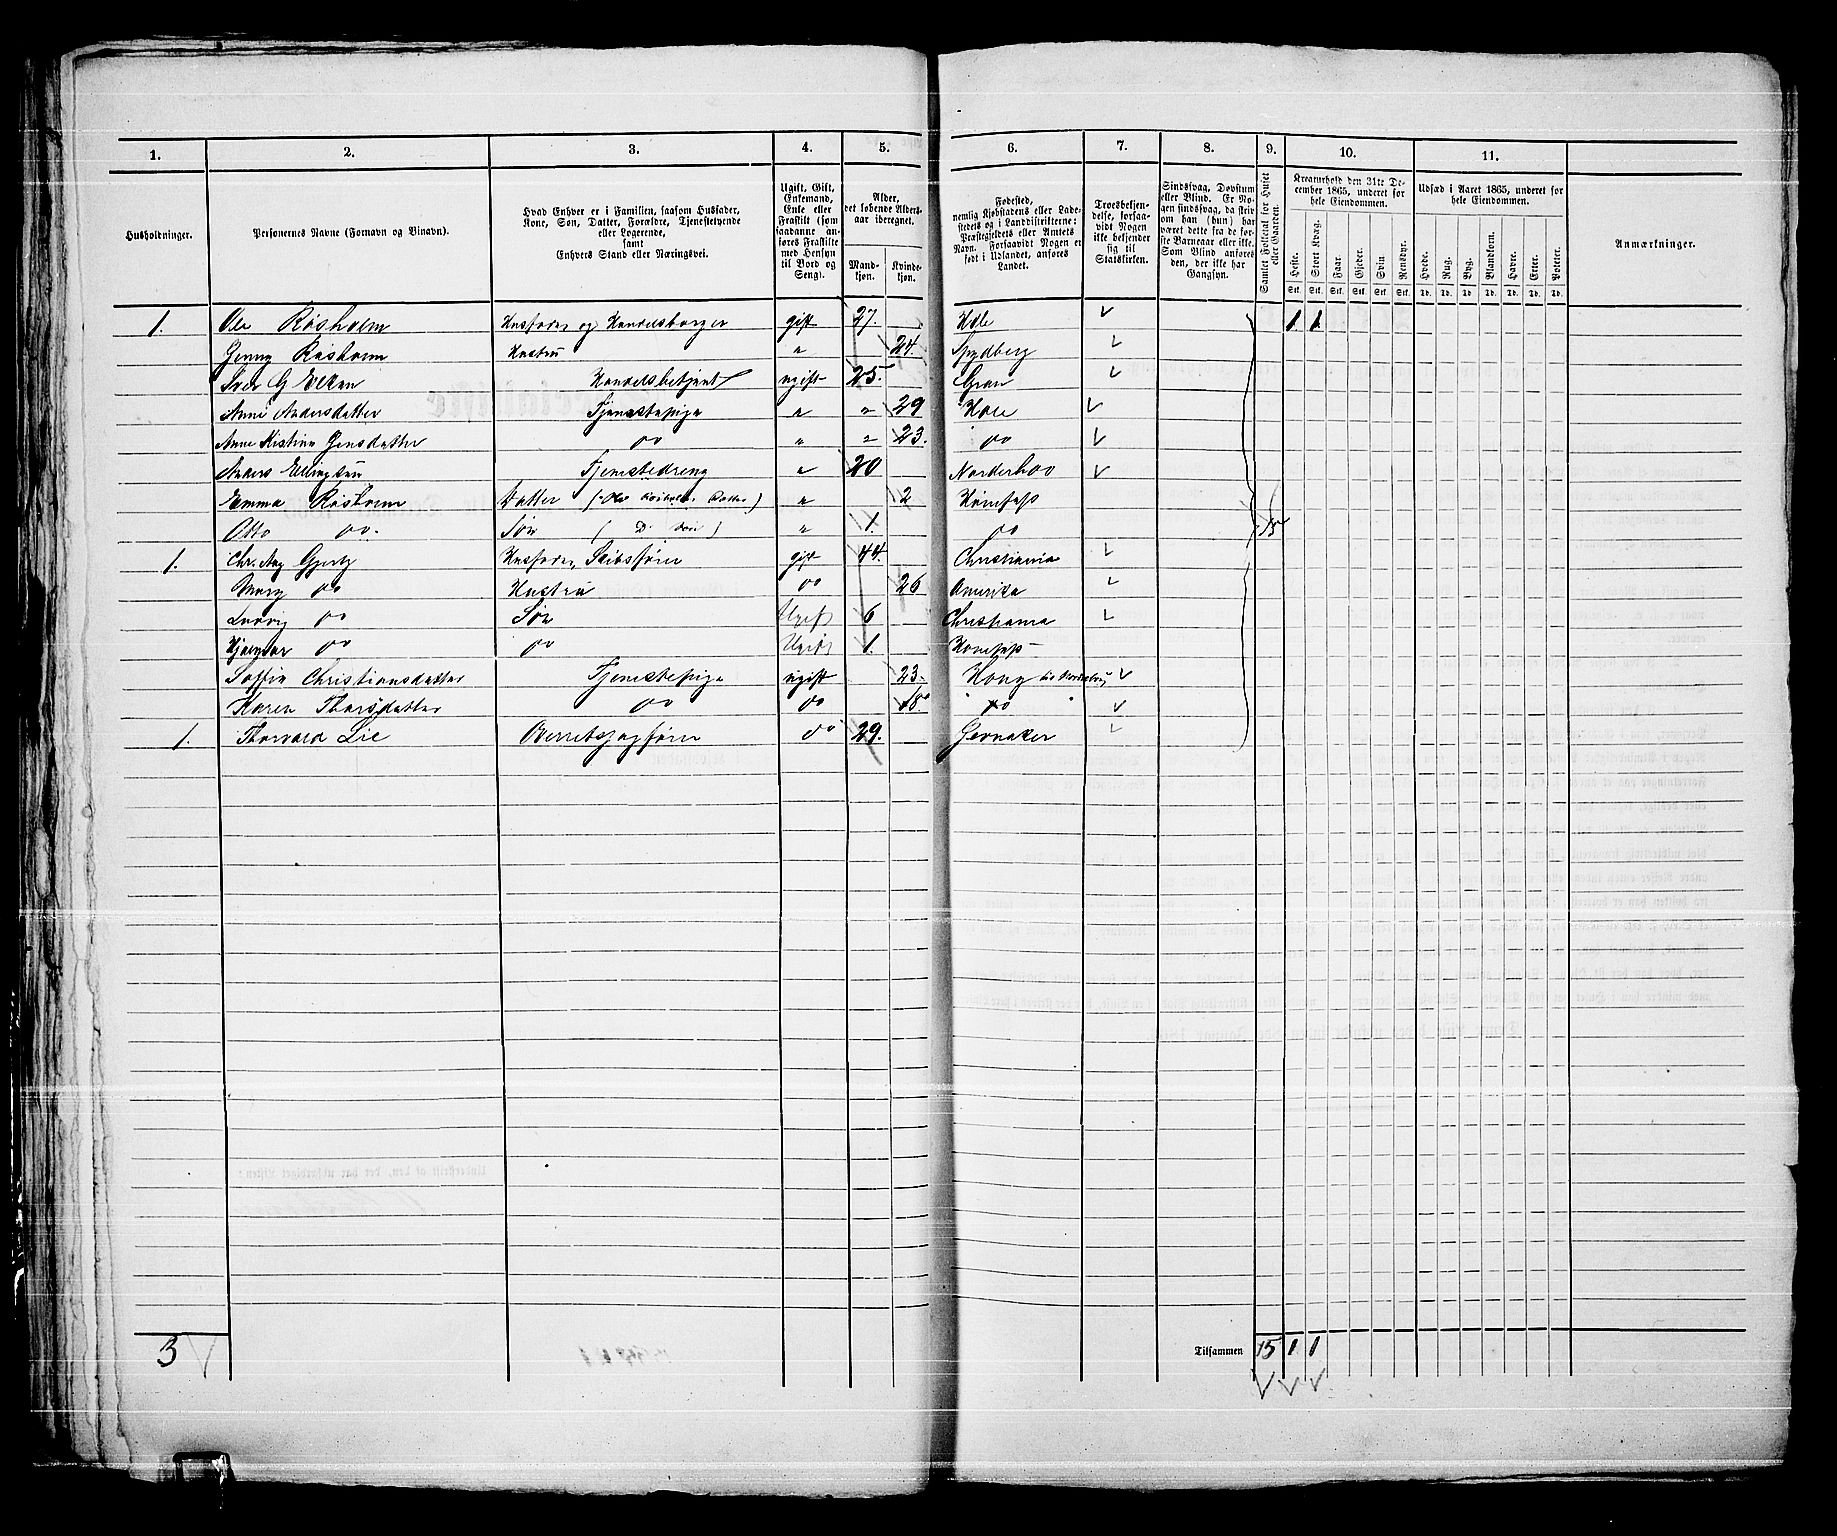 1. 2. 3. 4. 5. 6. 7. 8. 9. 10. 11.
Husholdninger.
Personernes Navne (Fornavn og Binavn).
Hvad Enhver er i Familien, saasom Husfader, Kone, Søn, Datter, Forældre, Tjenestetyende eller Logerende, samt Enhvers Stand eller Næringsvei.
Ugift, Gift, Enkemand, Enke eller Fraskilt (som saadanne anføres Fraskilte med Hensyn til Bord og Seng).
Alder, det løbende Alders-aar iberegnet.
Mandkjøn. Kvindekjøn.
Fødested, nemlig Kjøbstadens eller Ladestedets og i Landdistrikterne: Præstegjeldets eller Amtets Navn. Forsaavidt Nogen er født i Udlandet, anføres Landet.
Troesbekjendelse, forsaavidt Nogen ikke bekjender sig til Statskirken.
Sindssvag, Døvstum eller Blind. Er Nogen sindssvag, da skrives om han (hun) har været dette fra de første Barneaar eller ikke. Som Blind anføres den, der ikke har Gangsyn.
Samlet Folketal for Huset eller Gaarden.
Kreaturhold den 31te December 1865, underet for hele Eiendommen.
Heste. Stort Kvæg. Faar. Gjeder. Svin. Rensdyr.
Stk. Stk. Stk. Stk. Stk. Stk.
Udsæd i Aaret 1865, underet for hele Eiendommen.
Hvede. Rug. Byg. Blandkorn. Havre. Erter. Poteter.
Td. Td. Td. Td. Td. Td. Td.
Anmærkninger.
1. Ole Røsholm Husfader og Handelsborger gift 27. Hole 1 1
Jenny Røsholm Hustru " 24. Spydberg
Iver G Elken Handelsbetjent ugift 25. Gran
Anne Andersdatter Tjenestepige " " 29 Hole
Anne Kistine Jensdatter do " " 23. do
Anders Ellingsen Tjenestedreng " 20 Norderhov
Emma Røsholm Datter (Ole Røsholms Datter) " 2 Hønefos
Otto do. Søn ( D Søn ) " 1. do 15
1. Chr. Aug Gjertz Husfader, Skibsfører gift 44. Christiania
Mary do Hustru do 26 Amerika
Ludvig do Søn Ugift 6 Christiania
Hjalmar do do Ugift 1. Hønefos
Soffie Christiansdatter Tjenestepige ugift 23. Haug
Karen Thorsdatter do do 18 do
1. Thorvald Lie Overretssagfører do 29. Gevnaker
3 Tilsammen 15 1 1